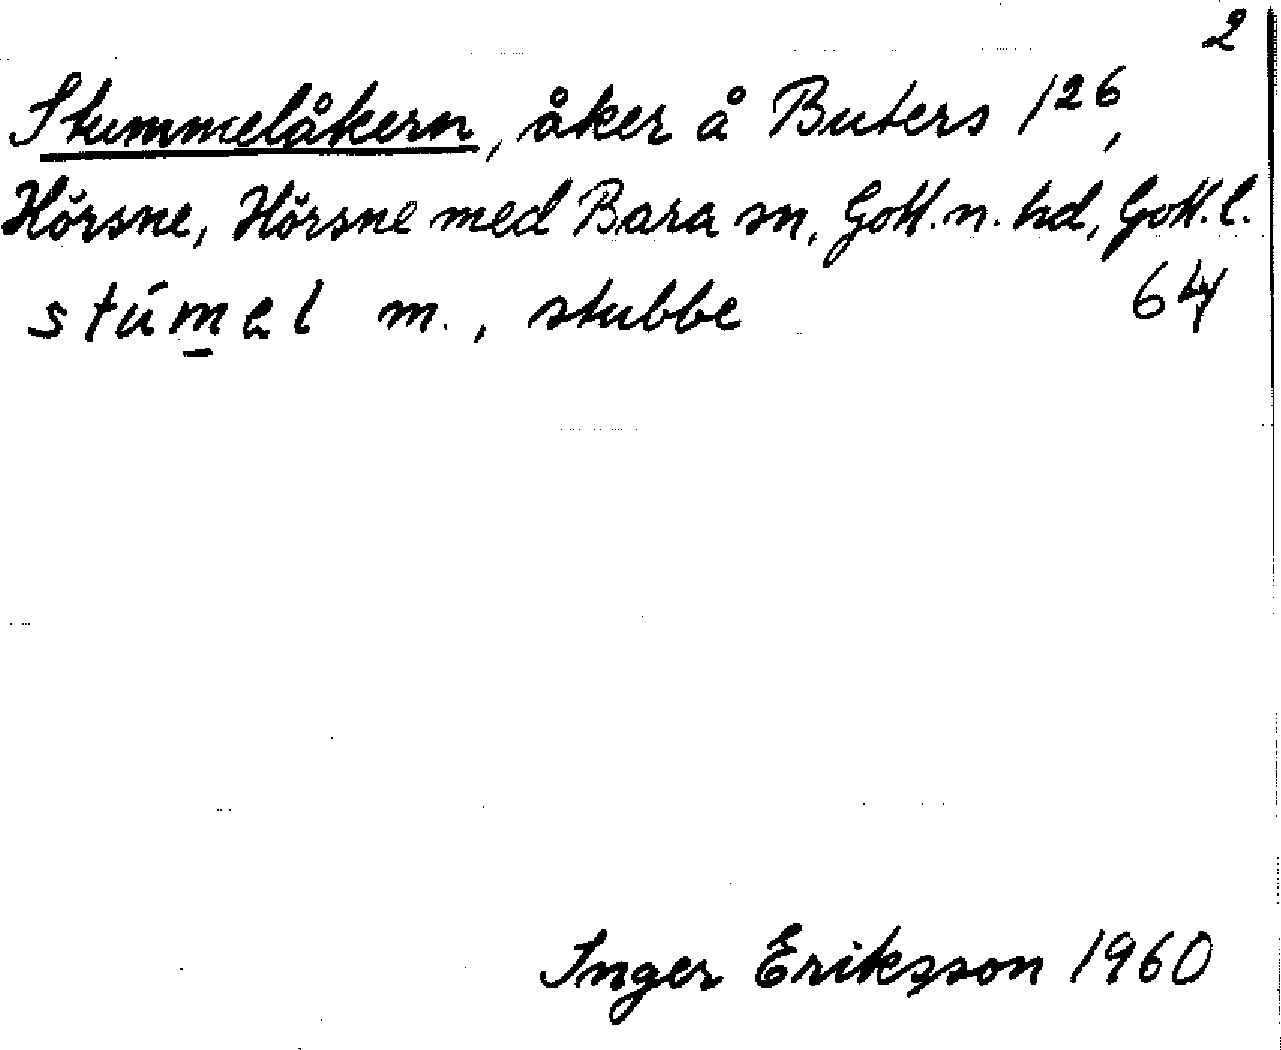 2
Stummelåkern, åker å Buters 1²⁶,
Hörsne, Hörsne med Bara sn, Gotl. n. hd, Gotl. l.
stúm̲el m., stubbe 64
Inger Eriksson 1960